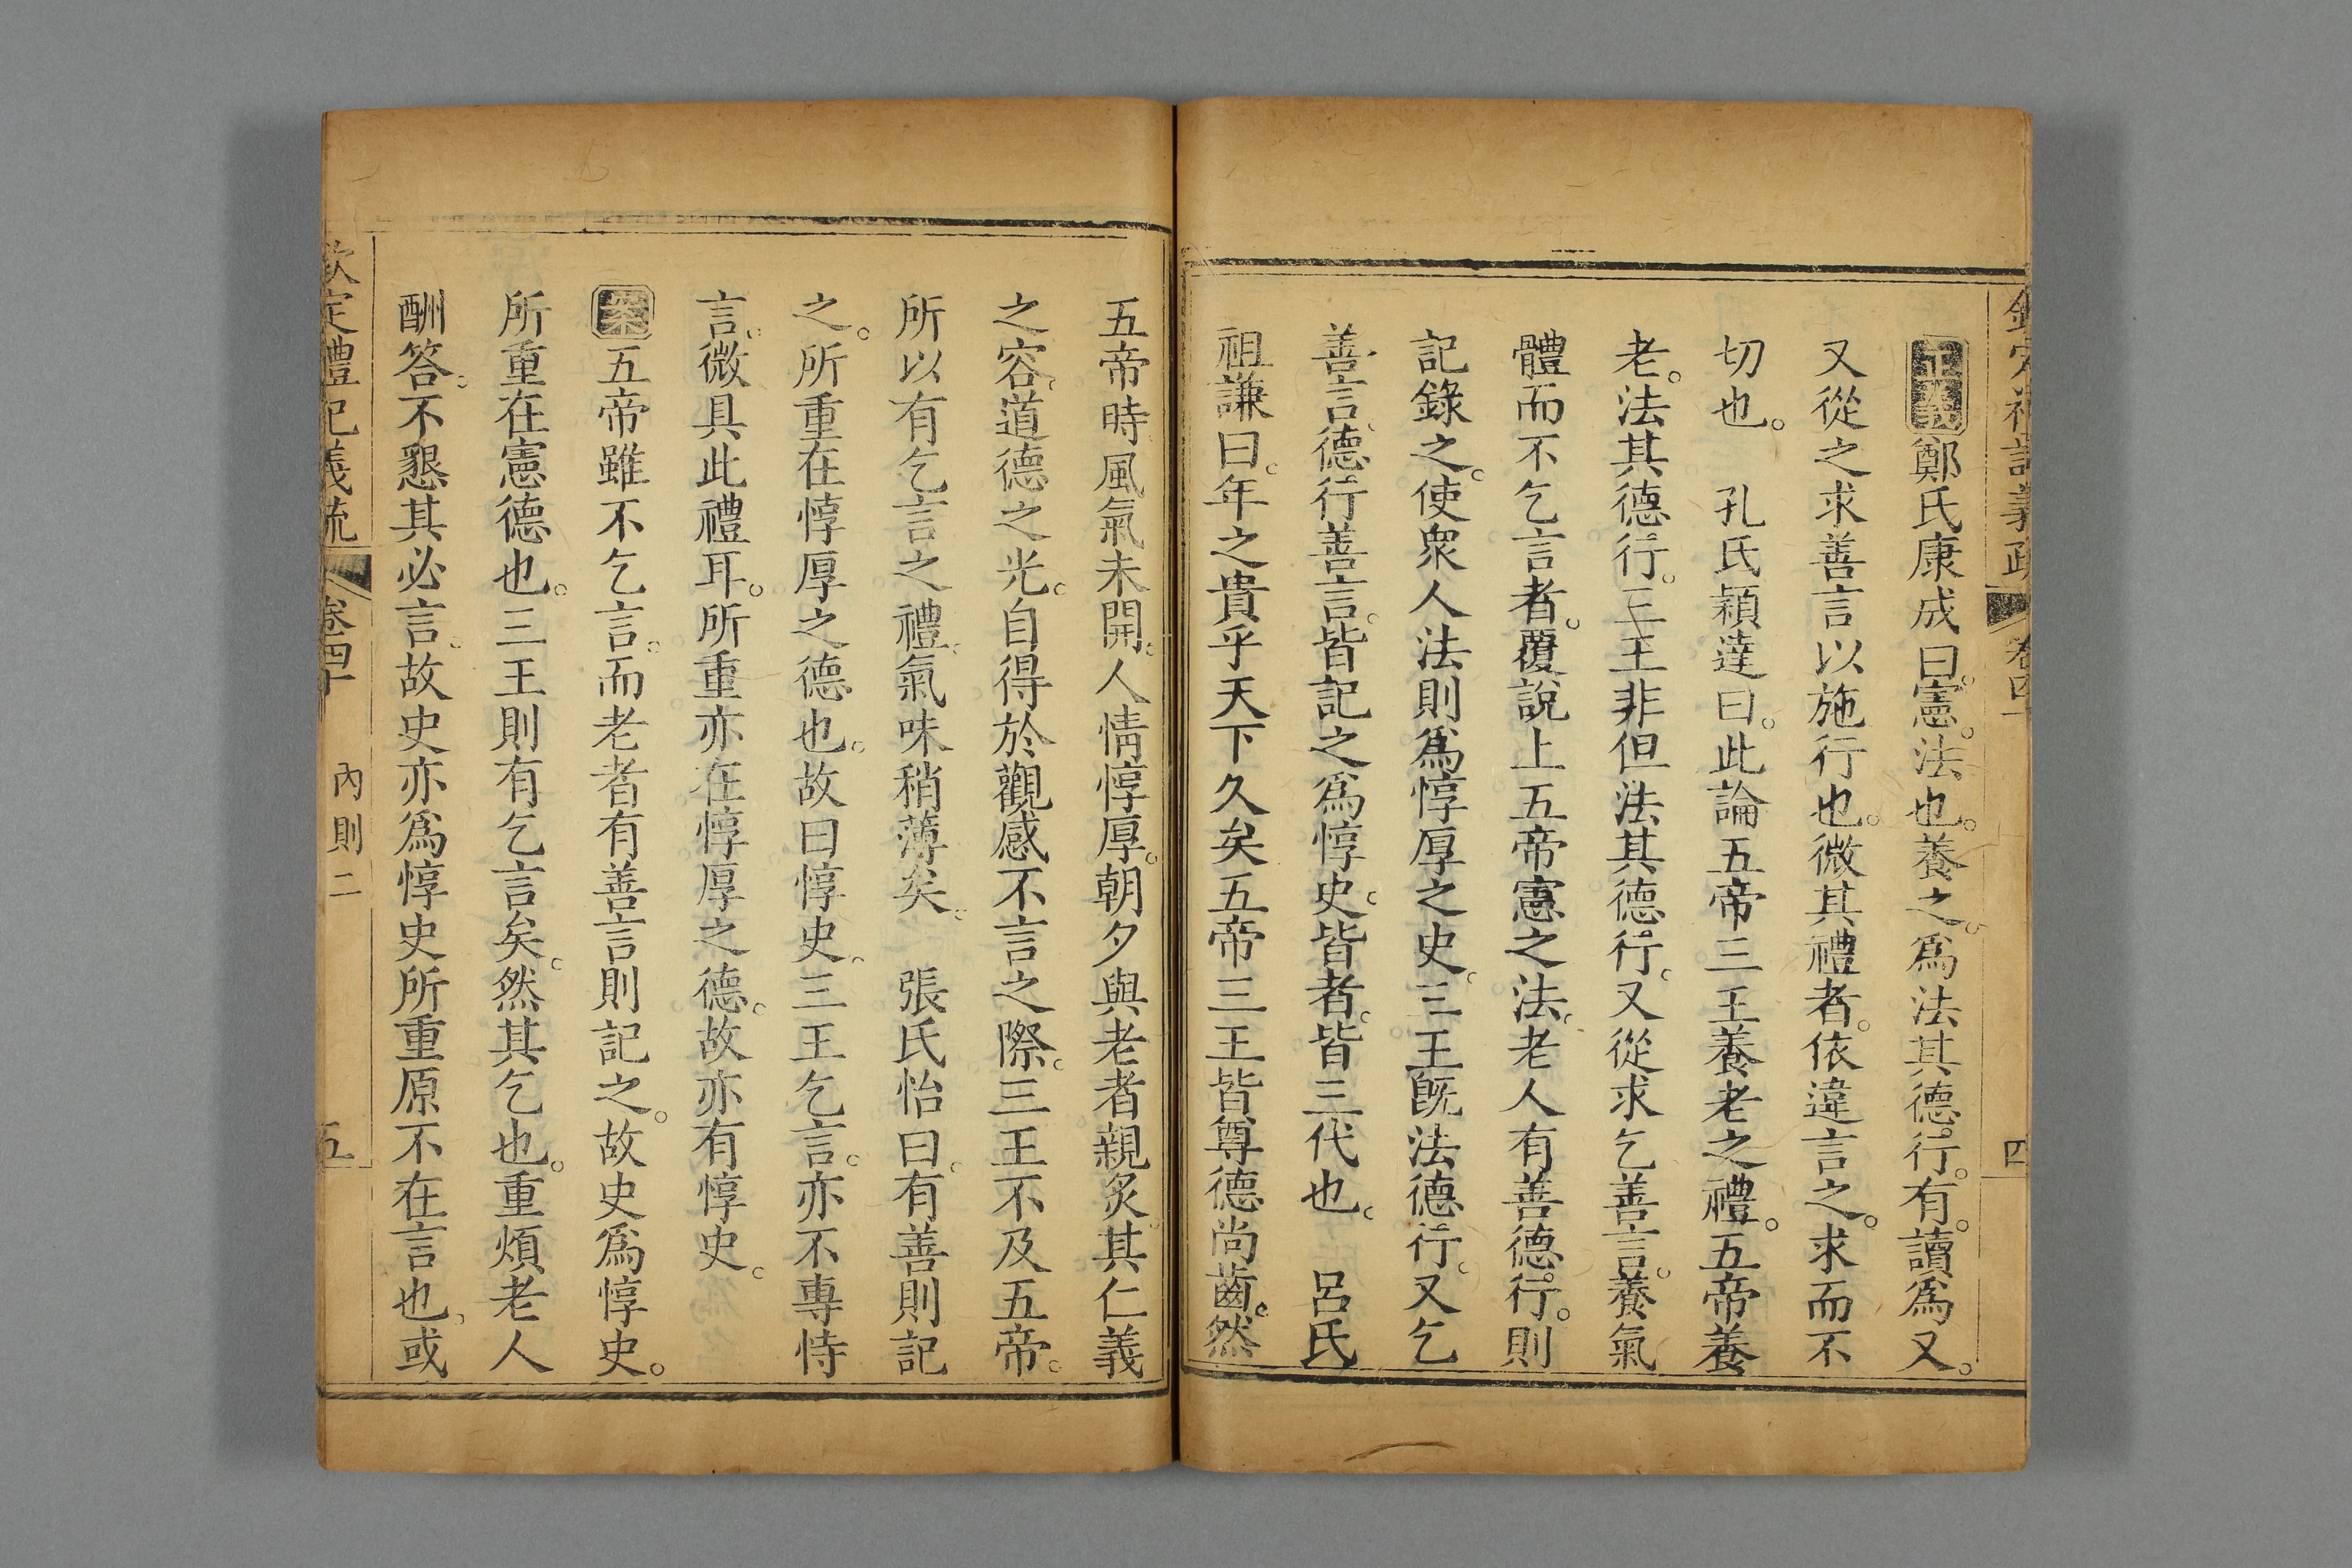 欽定禮記義疏 卷四十 四
正義鄭氏康成曰。憲。法也。養之。爲法其德行。有。讀爲又。
又從之求善言以施行也。微其禮者。依違言之。求而不
切也。 孔氏穎達曰。此論五帝三王養老之禮。五帝養
老。法其德行。三王非但法其德行。又從求乞善言。養氣
體而不乞言者。覆說上五帝憲之法。老人有善德行。則
記錄之。使衆人法則爲惇厚之史。三王旣法德行。又乞
善言。德行善言。皆記之爲惇史。皆者。皆三代也。 呂氏
祖謙曰。年之貴乎天下久矣五帝三王皆尊德尚齒。然
五帝時風氣未開。人情惇厚。朝夕與老者親炙其仁義
之容。道德之光。自得於觀感不言之際。三王不及五帝。
所以有乞言之禮。氣味稍薄矣。 張氏怡曰。有善則記
之。所重在惇厚之德也。故曰惇史。三王乞言。亦不專恃
言。微具此禮耳。所重亦在惇厚之德。故亦有惇史。
案五帝雖不乞言。而老者有善言則記之。故史爲惇史。
所重在憲德也。三王則有乞言矣。然其乞也。重煩老人
酬答。不懇其必言。故史亦爲惇史所重原不在言也。或
欽定禮記義疏 卷四十 內則二 五